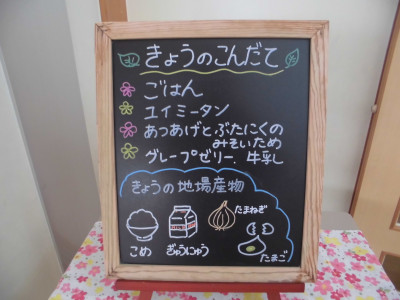 きょうのこんだて
ごはん
ユイミータン
あつあげとぶたにくの
みそいため
グレープゼリー、牛乳し
きょうの地場産物
こめ
ぎゅうにゅう
たまねぎ
たまご